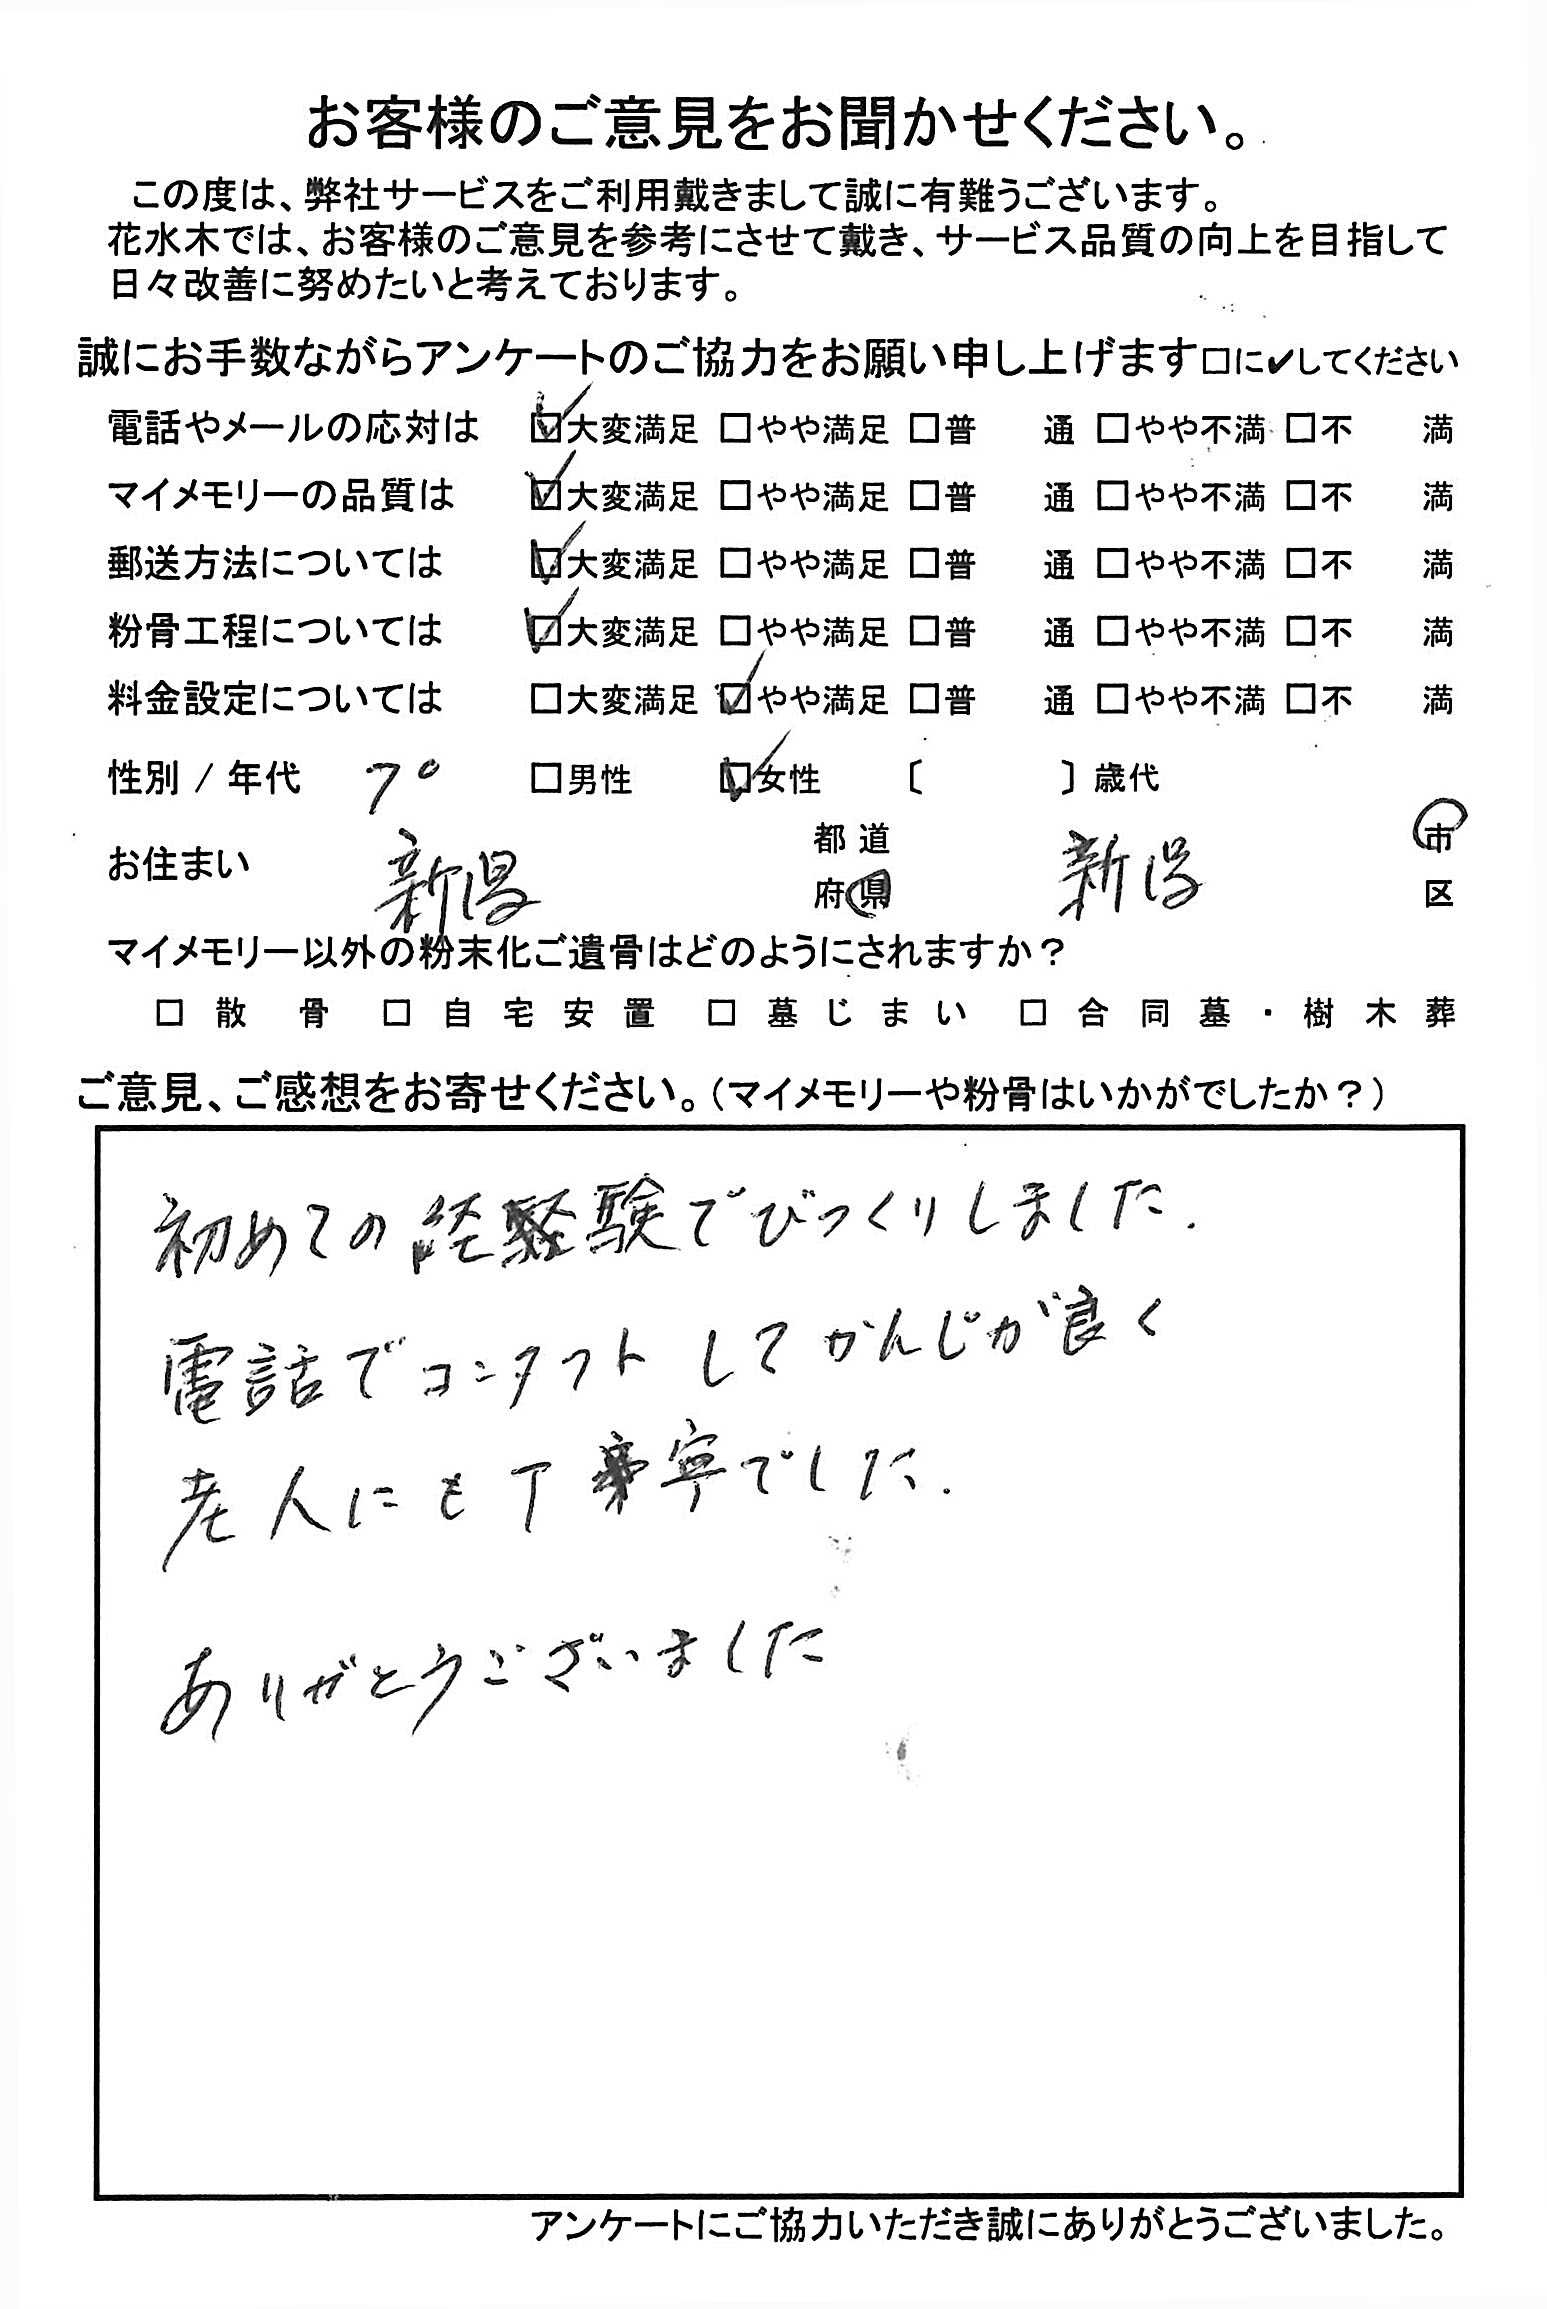 お客様のご意見をお聞かせください。
この度は、弊社サービスをご利用戴きまして誠に有難うございます。
花水木では、お客様のご意見を参考にさせて戴き、サービス品質の向上を目指して
日々改善に努めたいと考えております。
誠にお手数ながらアンケートのご協力をお願い申し上げます□に✔してください
電話やメールの応対は ☑大変満足 □やや満足 □普 通 □やや不満 □不 満
マイメモリーの品質は ☑大変満足 □やや満足 □普 通 □やや不満 □不 満
郵送方法については ☑大変満足 □やや満足 □普 通 □やや不満 □不 満
粉骨工程については ☑大変満足 □やや満足 □普 通 □やや不満 □不 満
料金設定については □大変満足 ☑やや満足 □普 通 □やや不満 □不 満
性別 / 年代 70 □男性 ☑女性 〔 〕歳代
お住まい 新潟 都道府県 新潟 市区
マイメモリー以外の粉末化ご遺骨はどのようにされますか？
□ 散骨 □ 自宅安置 □ 墓じまい □ 合同墓・樹木葬
ご意見、ご感想をお寄せください。(マイメモリーや粉骨はいかがでしたか？)
初めての経験でびっくりしました.
電話でコンタクトしてかんじが良く
老人にも丁寧でした.
ありがとうございました
アンケートにご協力いただき誠にありがとうございました。